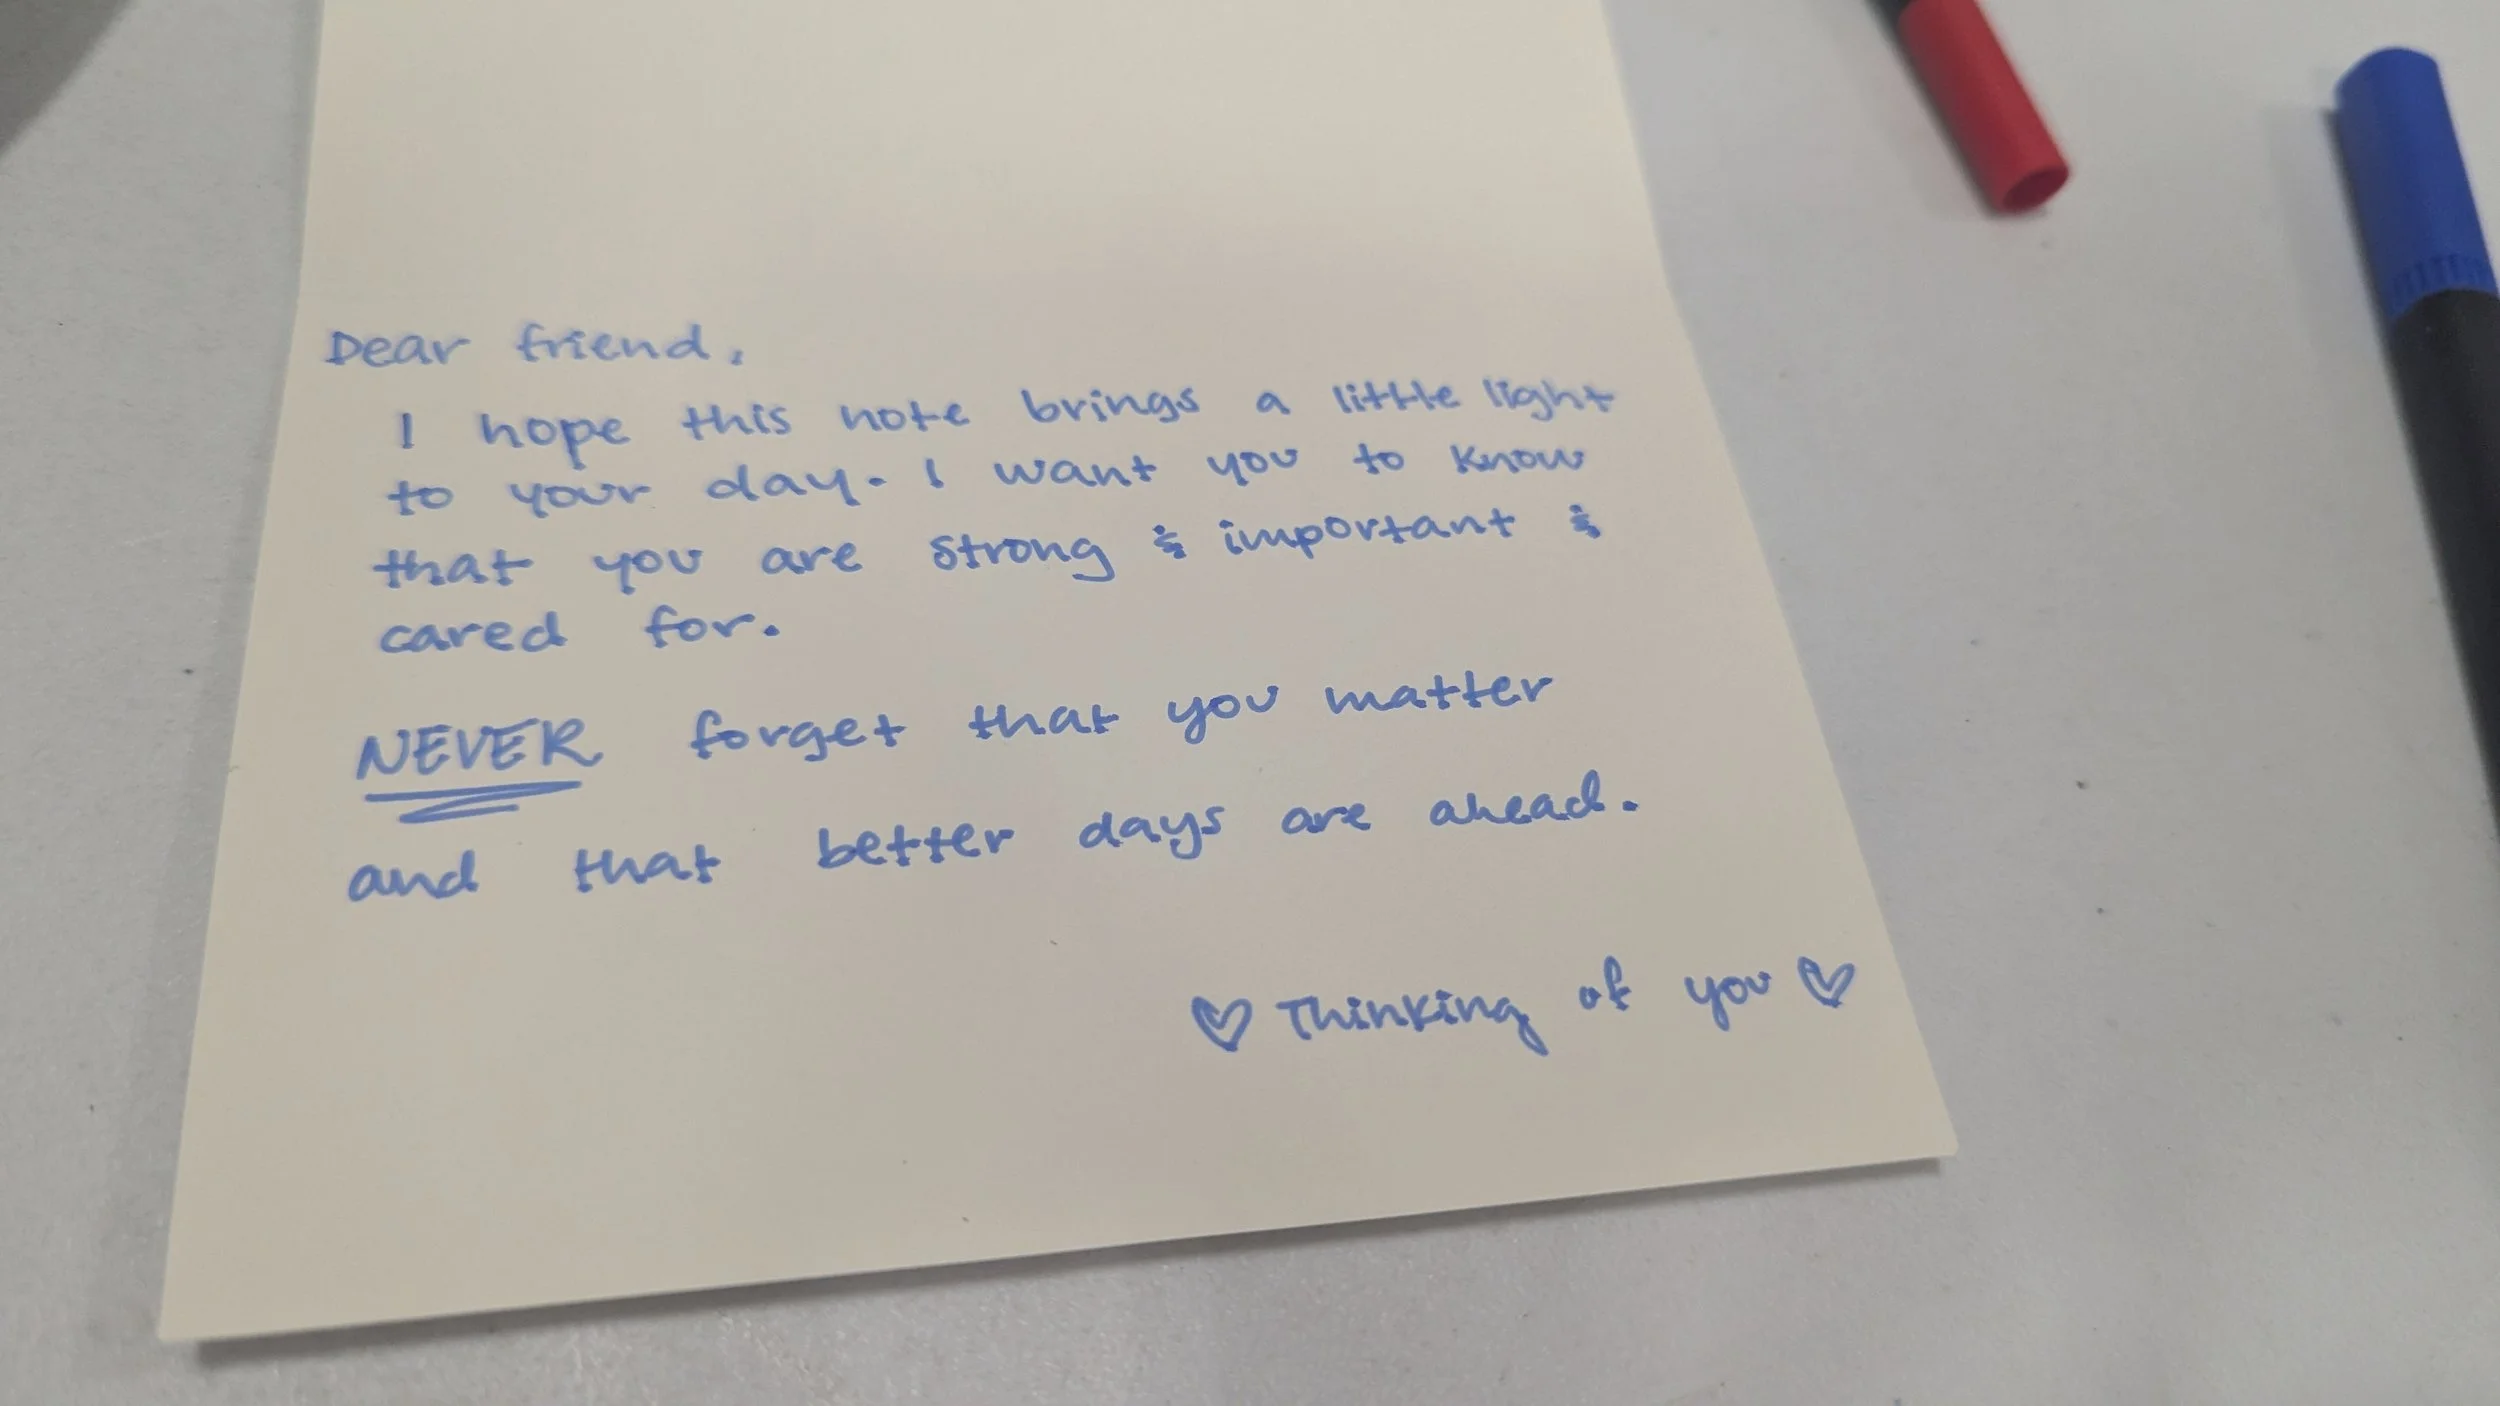 Dear friend,
I hope this note brings a little light
to your day. I want you to know
that you are strong & important &
cared for.
NEVER forget that you matter
and that better days are ahead.
♡ Thinking of you ♡